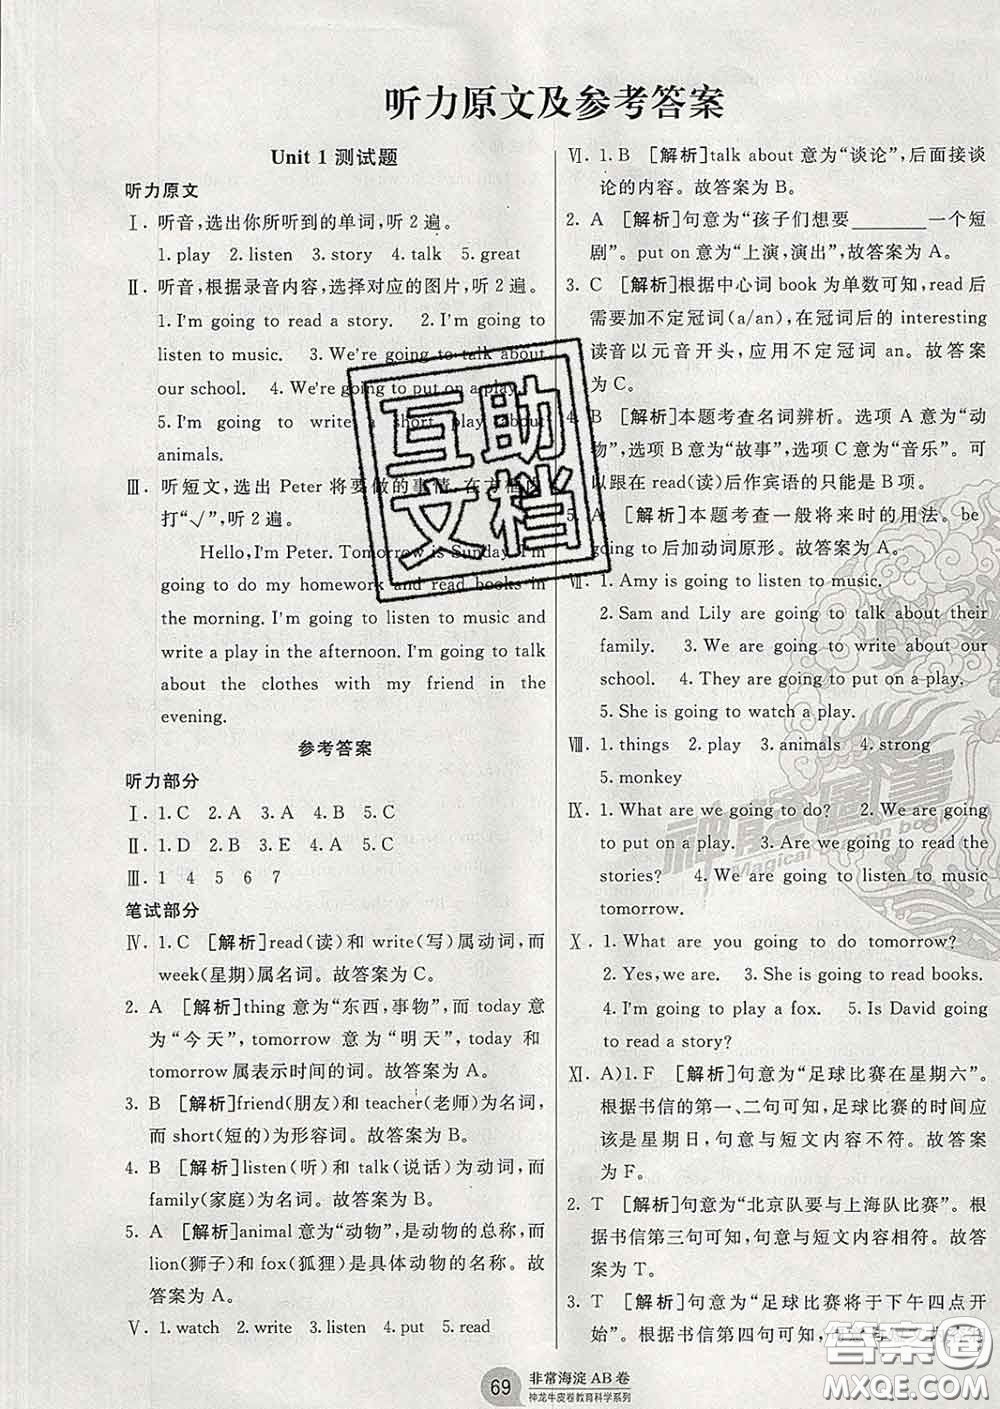 听力原文及参考答案
Unit 1 测试题
听力原文
Ⅰ. 听音,选出你所听到的单词,听 2 遍。
1. play 2. listen 3. story 4. talk 5. great
Ⅱ. 听音,根据录音内容,选择对应的图片,听 2 遍。
1. I'm going to read a story. 2. I'm going to
listen to music. 3. We're going to talk about
our school. 4. We're going to put on a play.
5. I'm going to write a short play about
animals.
Ⅲ. 听短文,选出 Peter 将要做的事情,在方框内
打“√”,听 2 遍。
Hello, I'm Peter. Tomorrow is Sunday. I'm
going to do my homework and read books in
the morning. I'm going to listen to music and
write a play in the afternoon. I'm going to talk
about the clothes with my friend in the
evening.
参考答案
听力部分
Ⅰ. 1. C 2. A 3. A 4. B 5. C
Ⅱ. 1. D 2. B 3. E 4. A 5. C
Ⅲ. 1 4 5 6 7
笔试部分
Ⅳ. 1. C [解析]read(读)和 write(写)属动词,而
week(星期)属名词。故答案为 C。
2. A [解析]thing 意为“东西,事物”,而 today 意
为“今天”,tomorrow 意为“明天”,today 和
tomorrow属表示时间的词。故答案为 A。
3. B [解析]friend(朋友)和 teacher(老师)为名词,
而 short(短的)为形容词。故答案为 B。
4. B [解析]listen(听)和 talk(说话)为动词,而
family(家庭)为名词。故答案为 B。
5. A [解析]animal 意为“动物”,是动物的总称,而
lion(狮子)和 fox(狐狸)是具体动物的名称。故
答案为 A。
Ⅴ. 1. watch 2. write 3. listen 4. put 5. read
Ⅵ. 1. B [解析]talk about 意为“谈论”,后面接谈
论的内容。故答案为 B。
2. A [解析]句意为“孩子们想要______一个短
剧”。put on 意为“上演,演出”,故答案为 A。
3. C [解析]根据中心词 book 为单数可知,read 后
需要加不定冠词(a/an),在冠词后的 interesting
读音以元音开头,应用不定冠词 an。故答案
为 C。
4. B [解析]本题考查名词辨析。选项 A 意为“动
物”,选项 B 意为“故事”,选项 C 意为“音乐”。可
以跟在 read(读)后作宾语的只能是 B 项。
5. A [解析]本题考查一般将来时的用法。be
going to 后加动词原形。故答案为 A。
Ⅶ. 1. Amy is going to listen to music.
2. Sam and Lily are going to talk about their
family. 3. We are going to write about our
school. 4. They are going to put on a play.
5. She is going to watch a play.
Ⅷ. 1. things 2. play 3. animals 4. strong
5. monkey
Ⅸ. 1. What are we going to do? 2. We are going
to put on a play. 3. Are we going to read the
stories? 4. We are going to listen to music
tomorrow.
Ⅹ. 1. What are you going to do tomorrow?
2. Yes, we are. 3. She is going to read books.
4. I'm going to play a fox. 5. Is David going
to read a story?
Ⅺ. A) 1. F [解析]句意为“足球比赛在星期六”。
根据书信的第一、二句可知,足球比赛的时间应
该是星期日,句意与短文内容不符。故答案
为 F。
2. T [解析]句意为“北京队要与上海队比赛”。根
据书信第三句可知,句意与短文内容相符。故答
案为 T。
3. T [解析]句意为“足球比赛将于下午四点开
始”。根据书信第四句可知,短文
69 非常海淀 AB 卷
神龙牛皮卷教育科学系列
互助
文档
神龍圖書
答案圈
MXQE.COM